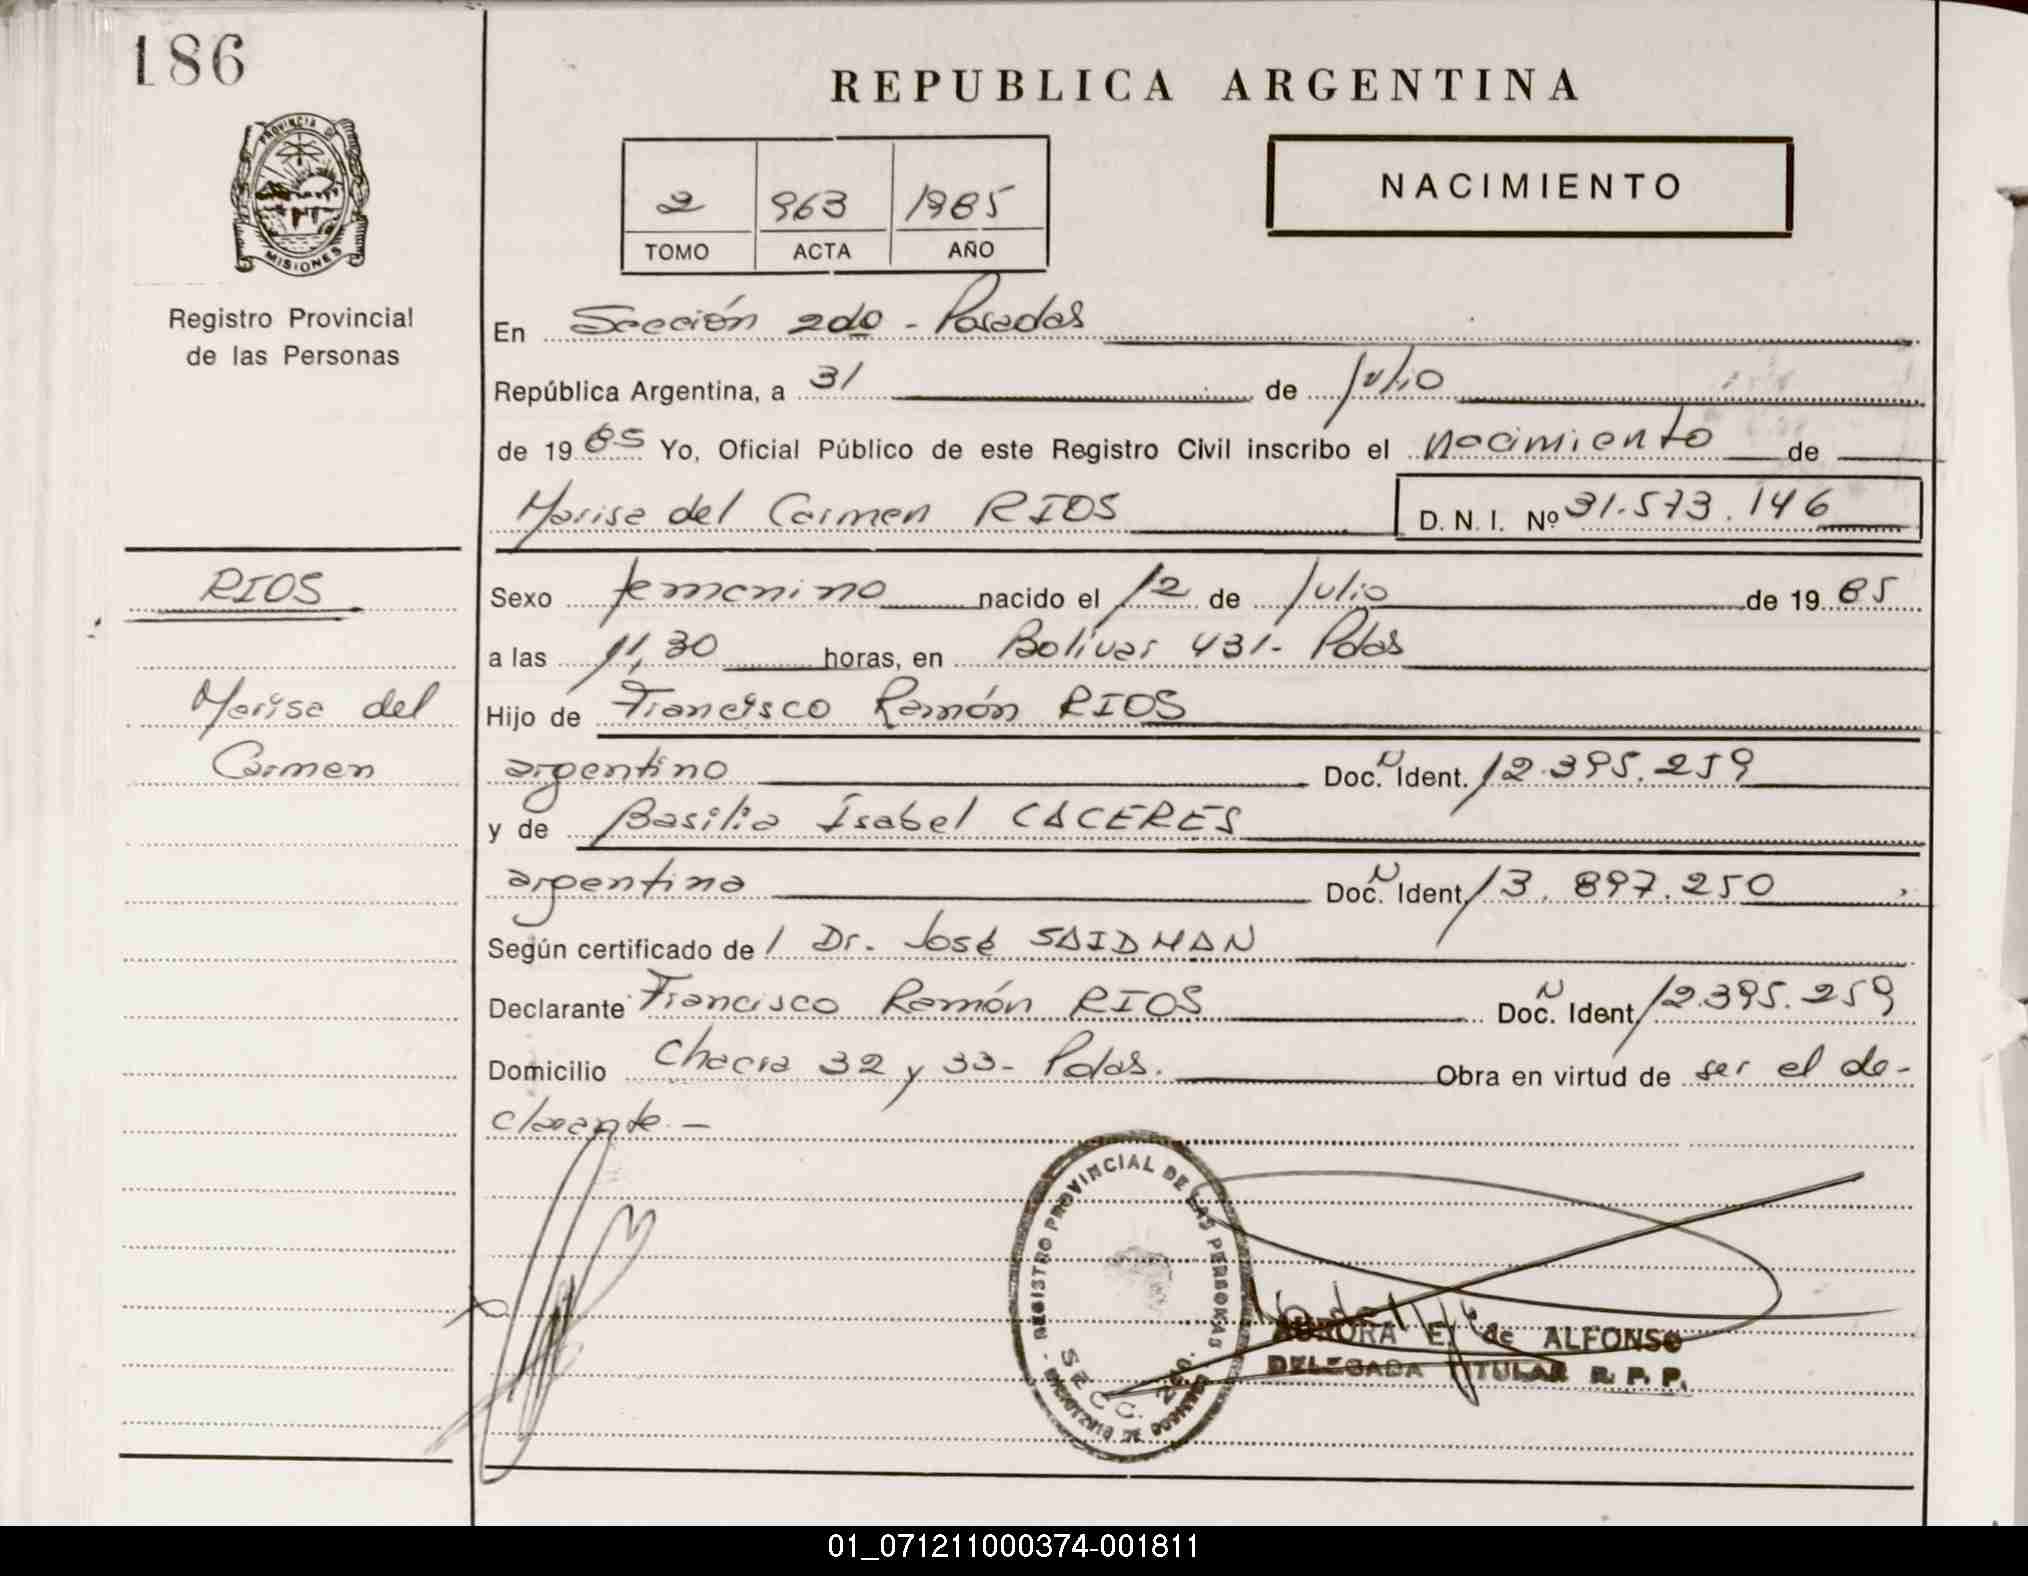 186
REPUBLICA ARGENTINA
PROVINCIA DE
MISIONES
2 963 1985
TOMO ACTA AÑO
NACIMIENTO
Registro Provincial
de las Personas
En Sección 2do - Posadas
República Argentina, a 31 de Julio
de 1985 Yo, Oficial Público de este Registro Civil inscribo el nacimiento de
Marisa del Carmen RIOS D. N. I. Nº 31.573.146
RIOS
Sexo femenino nacido el 12 de Julio de 1985
a las 11,30 horas, en Bolívar 431 - Pdas
Marisa del
Carmen
Hijo de Francisco Ramón RIOS
argentino Doc. N Ident. 12.395.259
y de Basilia Isabel CACERES
argentina Doc. N Ident. 13.897.250
Según certificado de / Dr. José SAIDMAN
Declarante Francisco Ramón RIOS Doc. N Ident. 12.395.259
Domicilio Chacra 32 y 33 - Pdas. Obra en virtud de ser el de-
clarante. -
REGISTRO PROVINCIAL DE LAS PERSONAS
SECC. 2DO.
AURORA E. de ALFONSO
DELEGADA TITULAR R. P. P.
01_071211000374-001811